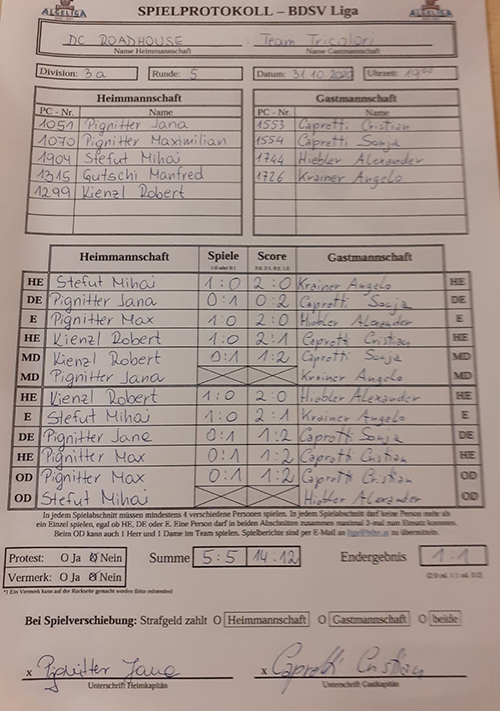 ALGELIGA SPIELPROTOKOLL – BDSV Liga ALGELIGA
DC ROADHOUSE : Team Tricolori
Name Heimmannschaft Name Gastmannschaft
Division: 3a Runde: 5 Datum: 31.10.2020 Uhrzeit: 19°°
Heimmannschaft Gastmannschaft
PC - Nr. Name PC - Nr. Name
1051 Pignitter Jana 1553 Caprotti Cristian
1070 Pignitter Maximilian 1554 Caprotti Sonja
1904 Stefut Mihai 1744 Hiebler Alexander
1315 Gutschi Manfred 1726 Krainer Angelo
1299 Kienzl Robert
Heimmannschaft Spiele Score Gastmannschaft
1:0 oder 0:1 2:0, 2:1, 0:2, 1:2
HE Stefut Mihai 1:0 2:0 Krainer Angelo HE
DE Pignitter Jana 0:1 0:2 Caprotti Sonja DE
E Pignitter Max 1:0 2:0 Hiebler Alexander E
HE Kienzl Robert 1:0 2:1 Caprotti Cristian HE
MD Kienzl Robert 0:1 1:2 Caprotti Sonja MD
MD Pignitter Jana Krainer Angelo MD
HE Kienzl Robert 1:0 2:0 Hiebler Alexander HE
E Stefut Mihai 1:0 2:1 Krainer Angelo E
DE Pignitter Jana 0:1 1:2 Caprotti Sonja DE
HE Pignitter Max 0:1 1:2 Caprotti Cristian HE
OD Pignitter Max 0:1 1:2 Caprotti Cristian OD
OD Stefut Mihai Hiebler Alexander OD
In jedem Spielabschnitt müssen mindestens 4 verschiedene Personen spielen. In jedem Spielabschnitt darf keine Person mehr als
ein Einzel spielen, egal ob HE, DE oder E. Eine Person darf in beiden Abschnitten zusammen maximal 3-mal zum Einsatz kommen.
Beim OD kann auch 1 Herr und 1 Dame im Team spielen. Spielberichte sind per E-Mail an zu übermitteln.
Protest: O Ja O Nein Summe 5:5 14:12 Endergebnis 1:1
Vermerk: O Ja O Nein (2:0 od. 1:1 od. 0:2)
*) Ein Vermerk kann auf der Rückseite gemacht werden (bitte mitsenden)
Bei Spielverschiebung: Strafgeld zahlt O Heimmannschaft O Gastmannschaft O beide
x Pignitter Jana x Caprotti Cristian
Unterschrift Heimkapitän Unterschrift Gastkapitän